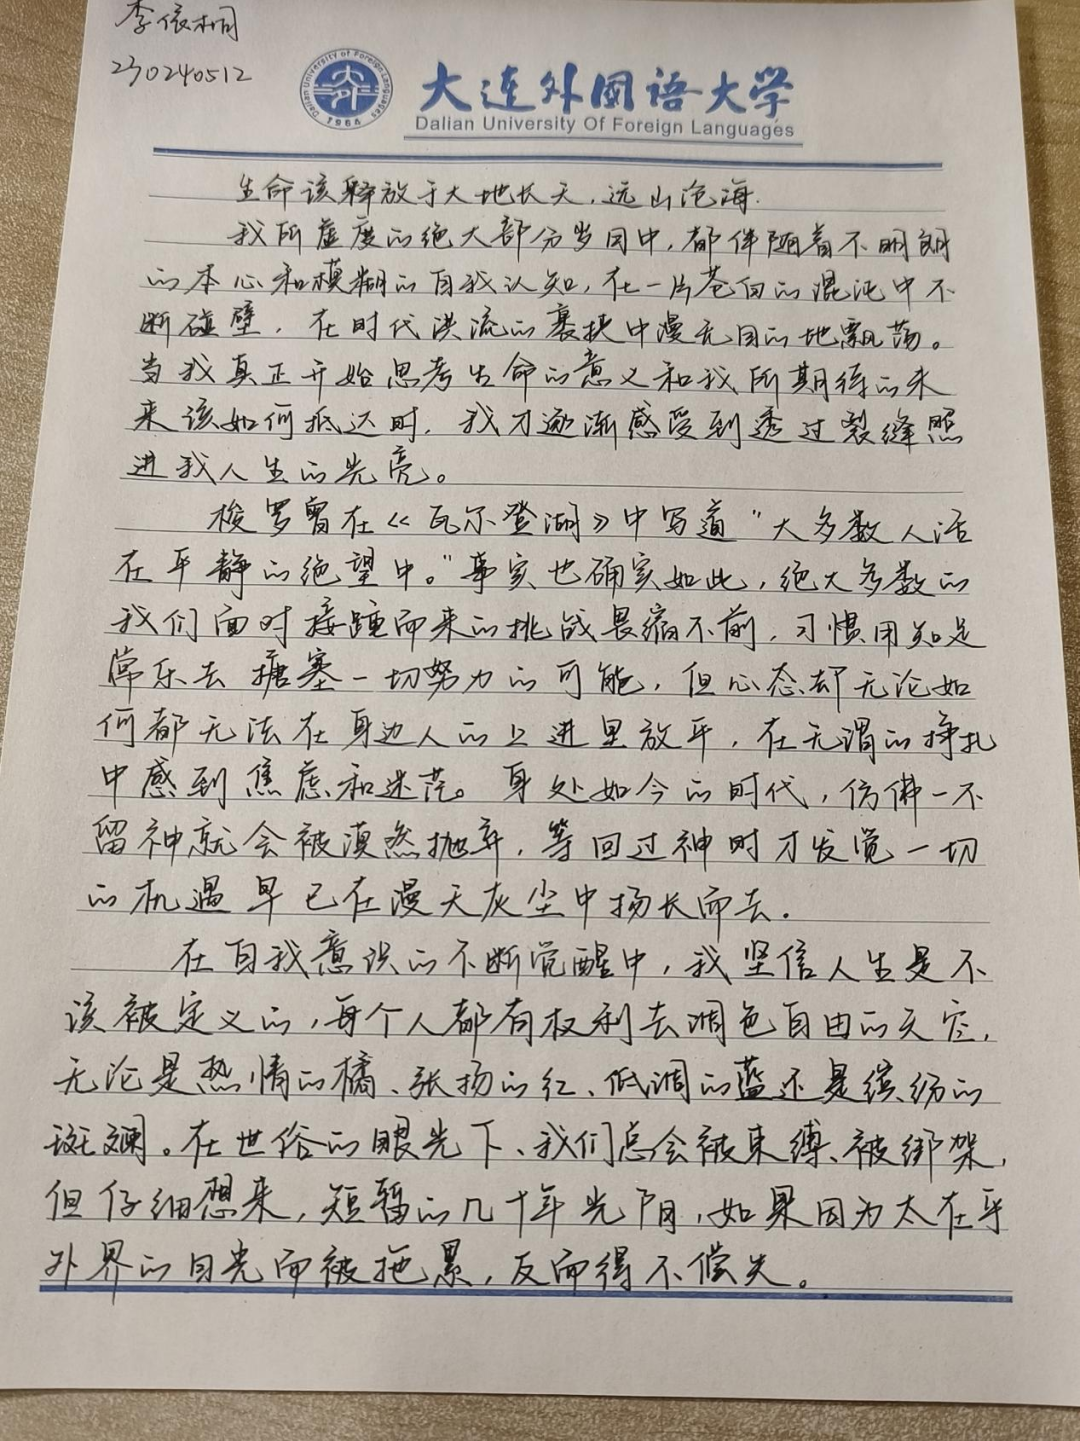 李依桐
230240512
Dalian University of Foreign Languages
1964
大连外国语大学
Dalian University Of Foreign Languages
生命该释放于大地长天,远山沧海.
我所虚度的绝大部分岁月中,都伴随着不明朗
的本心和模糊的自我认知,在一片苍白的混沌中不
断碰壁,在时代洪流的裹挟中漫无目的地飘荡。
当我真正开始思考生命的意义和我所期待的未
来该如何抵达时,我才逐渐感受到透过裂缝照
进我人生的光亮。
梭罗曾在《瓦尔登湖》中写道“大多数人活
在平静的绝望中。”事实也确实如此,绝大多数的
我们面对接踵而来的挑战畏缩不前,习惯用知足
常乐去搪塞一切努力的可能,但心态却无论如
何都无法在身边人的上进里放平,在无谓的挣扎
中感到焦虑和迷茫。身处如今的时代,仿佛一不
留神就会被漠然抛弃,等回过神时才发觉一切
的机遇早已在漫天灰尘中扬长而去.
在自我意识的不断觉醒中,我坚信人生是不
该被定义的,每个人都有权利去调色自由的天空,
无论是热情的橘、张扬的红、低调的蓝还是缤纷的
斑斓。在世俗的眼光下、我们总会被束缚、被绑架,
但仔细想来,短暂的几十年光阴,如果因为太在乎
外界的目光而被拖累,反而得不偿失。